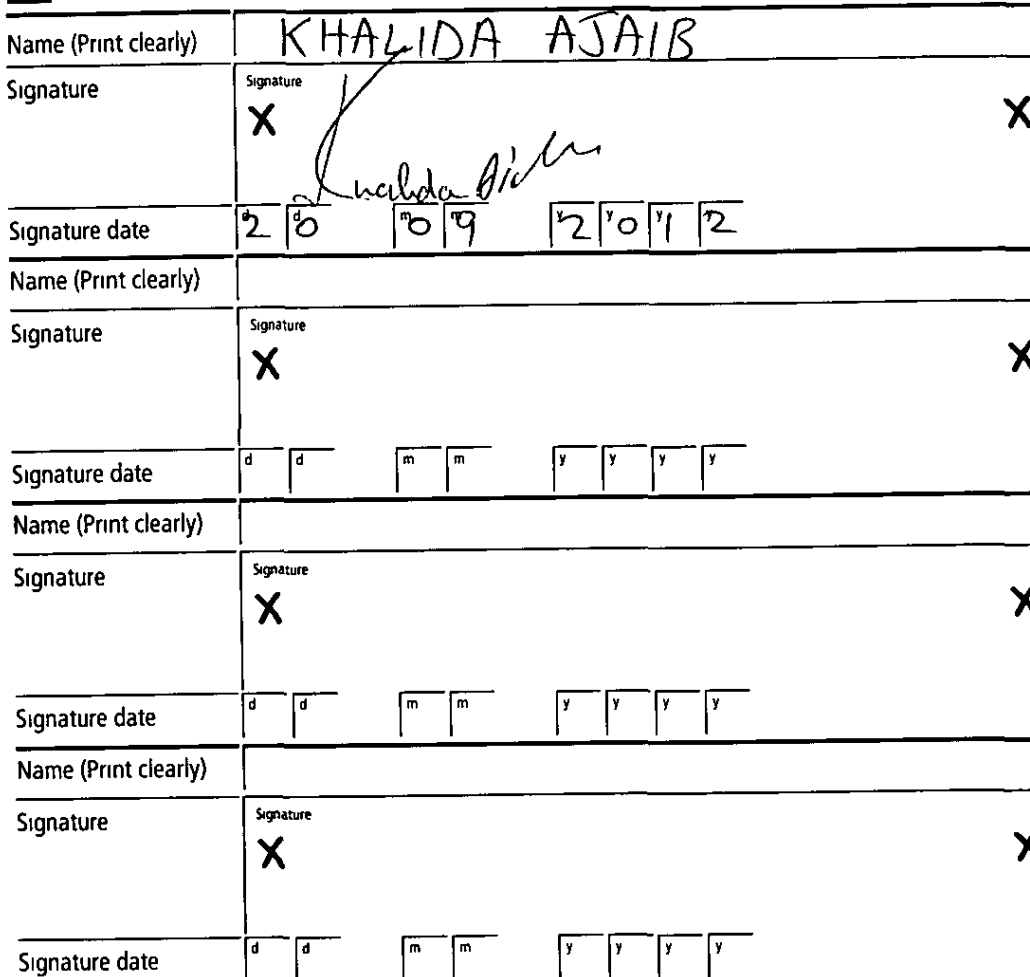 Name (Print clearly) KHALIDA AJAIB
Signature Signature
X X
Khalida
Signature date d d m m y y y y 20 09 2012
Name (Print clearly)
Signature Signature
X X
Signature date d d m m y y y y
Name (Print clearly)
Signature Signature
X X
Signature date d d m m y y y y
Name (Print clearly)
Signature Signature
X X
Signature date d d m m y y y y